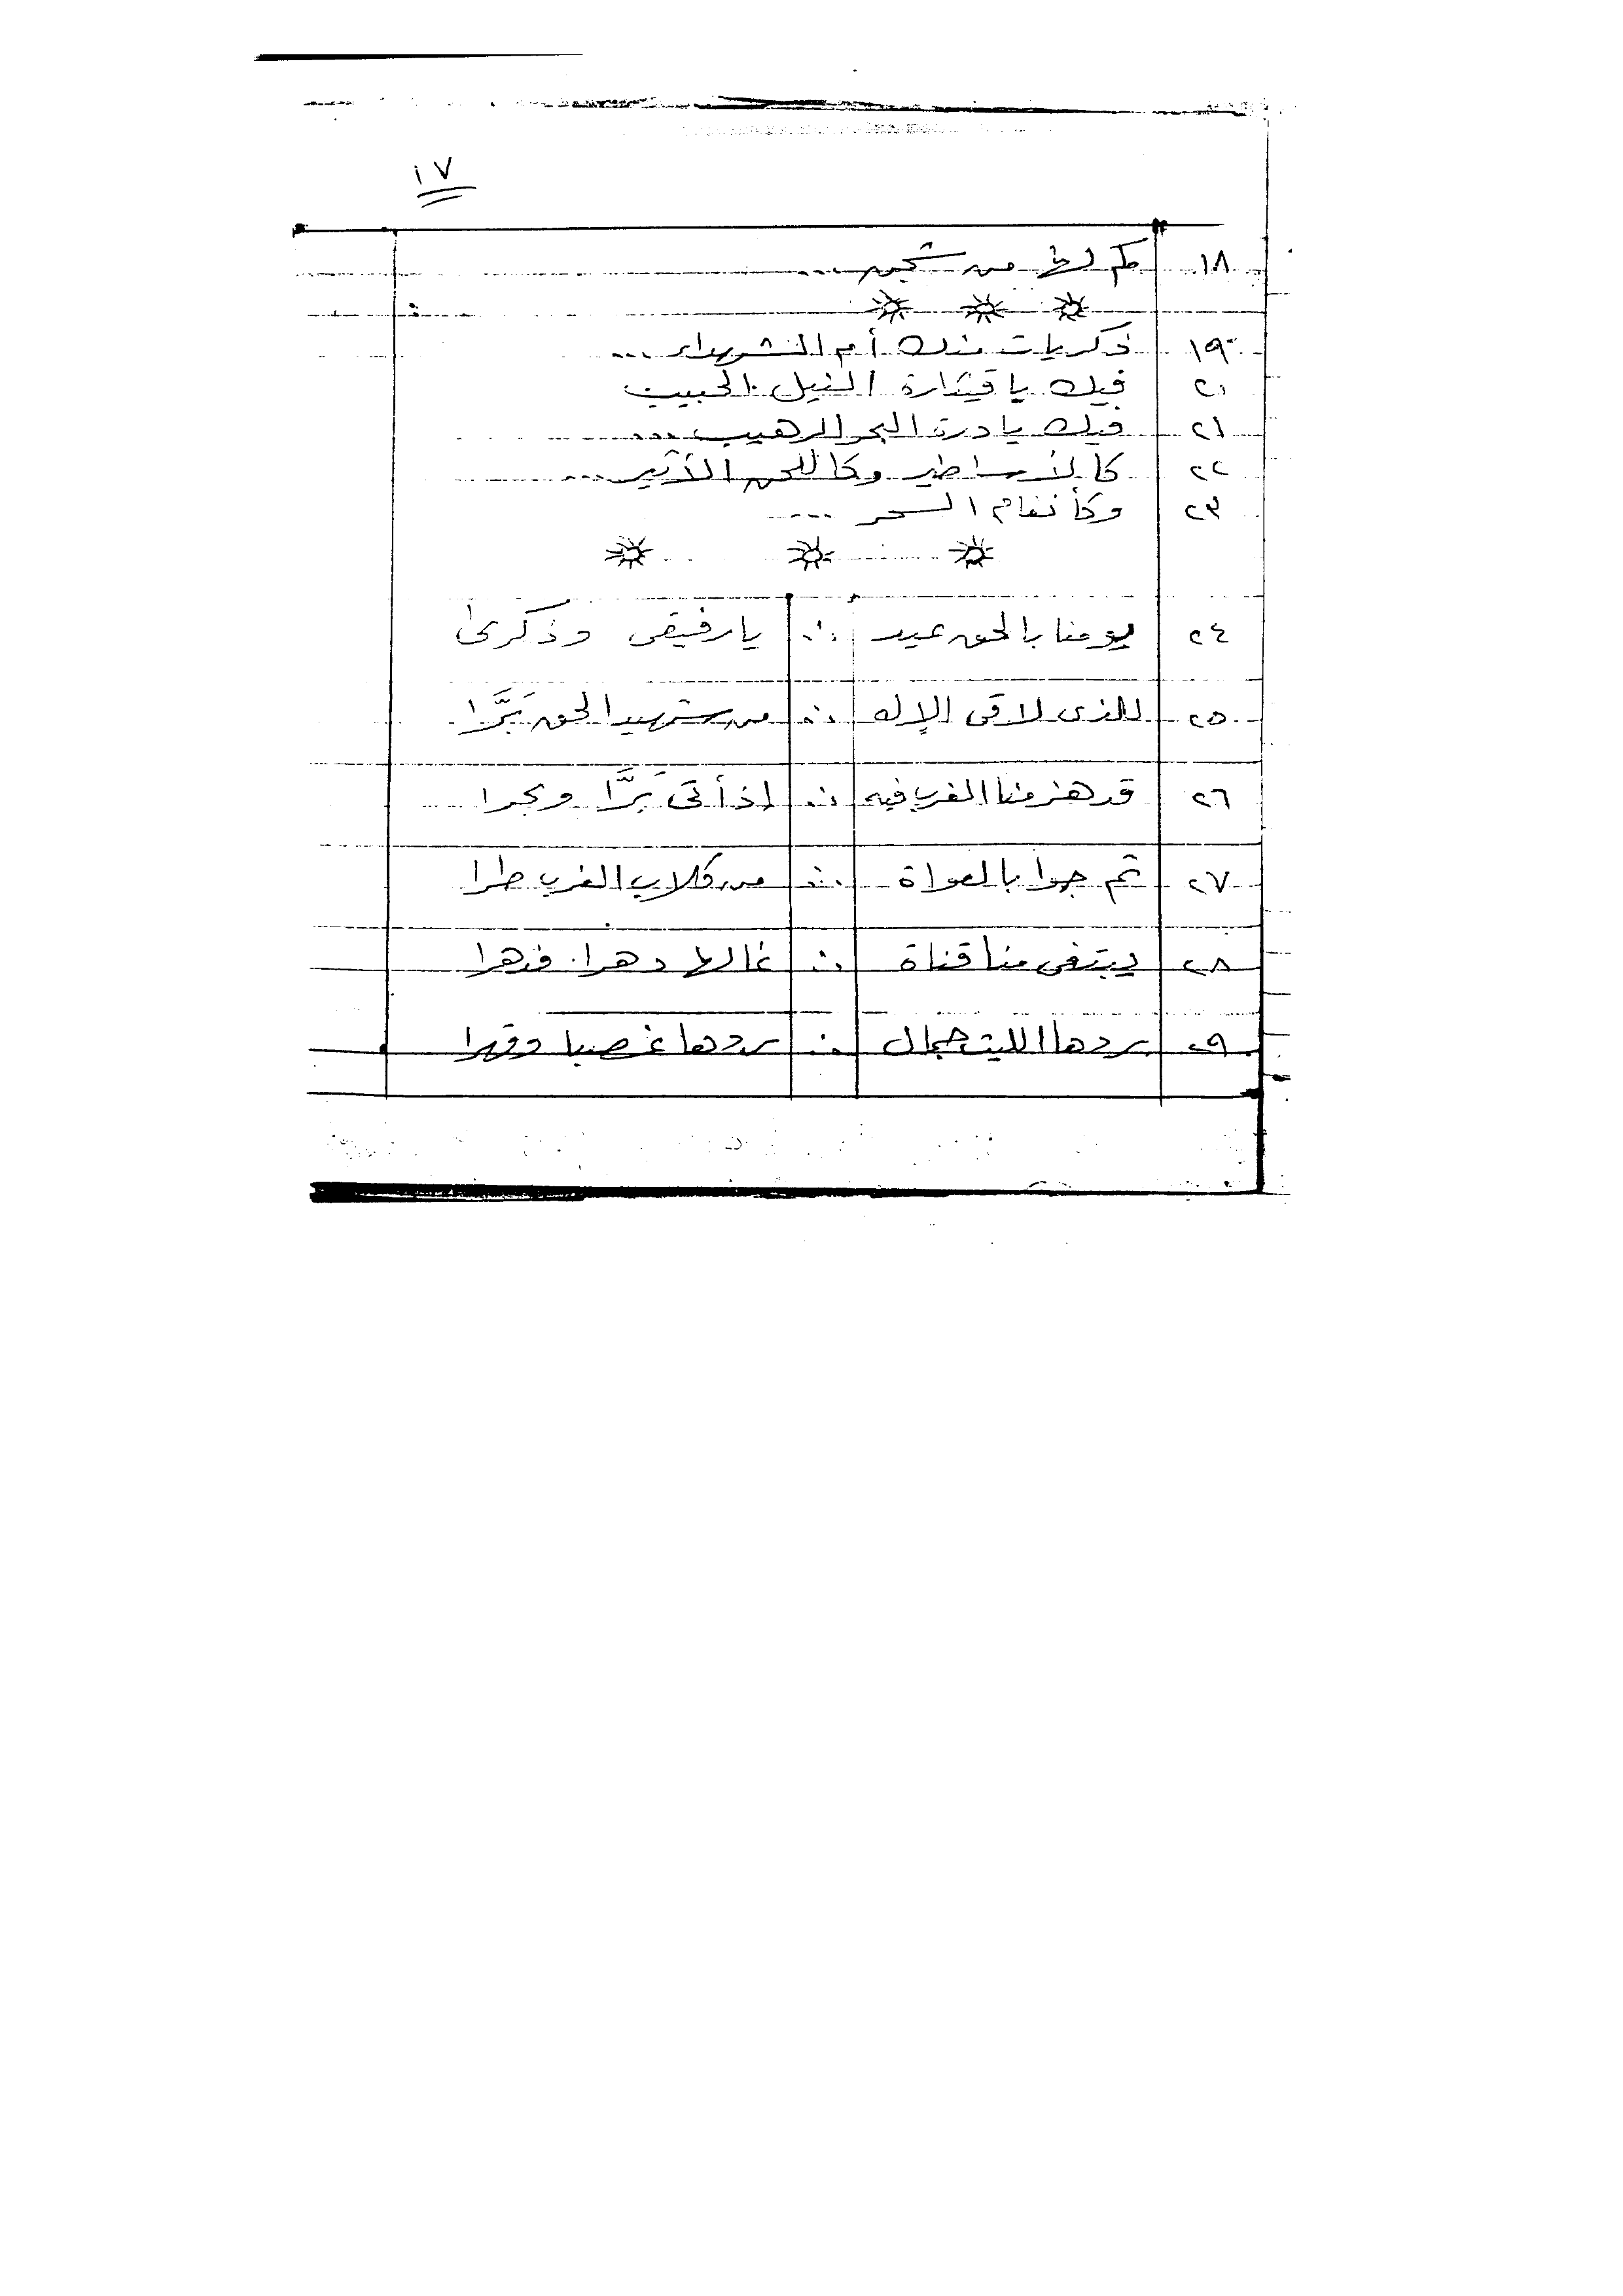 ١٧
١٨ كم لها من شجن ...
١٩ ذكريات منك أم الشهداء ...
٢٠ فيك يا قيثارة النيل الحبيب
٢١ فيك يا درة البحر الرهيب ...
٢٢ كالأساطير وكاللحن الأثير ...
٢٣ وكأنغام السحر ....
٢٤ يومنا بالحق عيد ∴ يا رفيقى وذكرى
٢٥ للذى لاقى الإله ∴ من شهيد الحق بَرَّا
٢٦ قد هزمنا الغرب فيه ∴ إذ أتى بَرَّا وبحرا
٢٧ ثم جوا بالعواة ∴ من كلاب الغرب طرا
٢٨ يبتغى منا قناة ∴ غالها دهرا فدهرا
٢٩ ردها الليث جمال ∴ ردها غصبا وقهرا